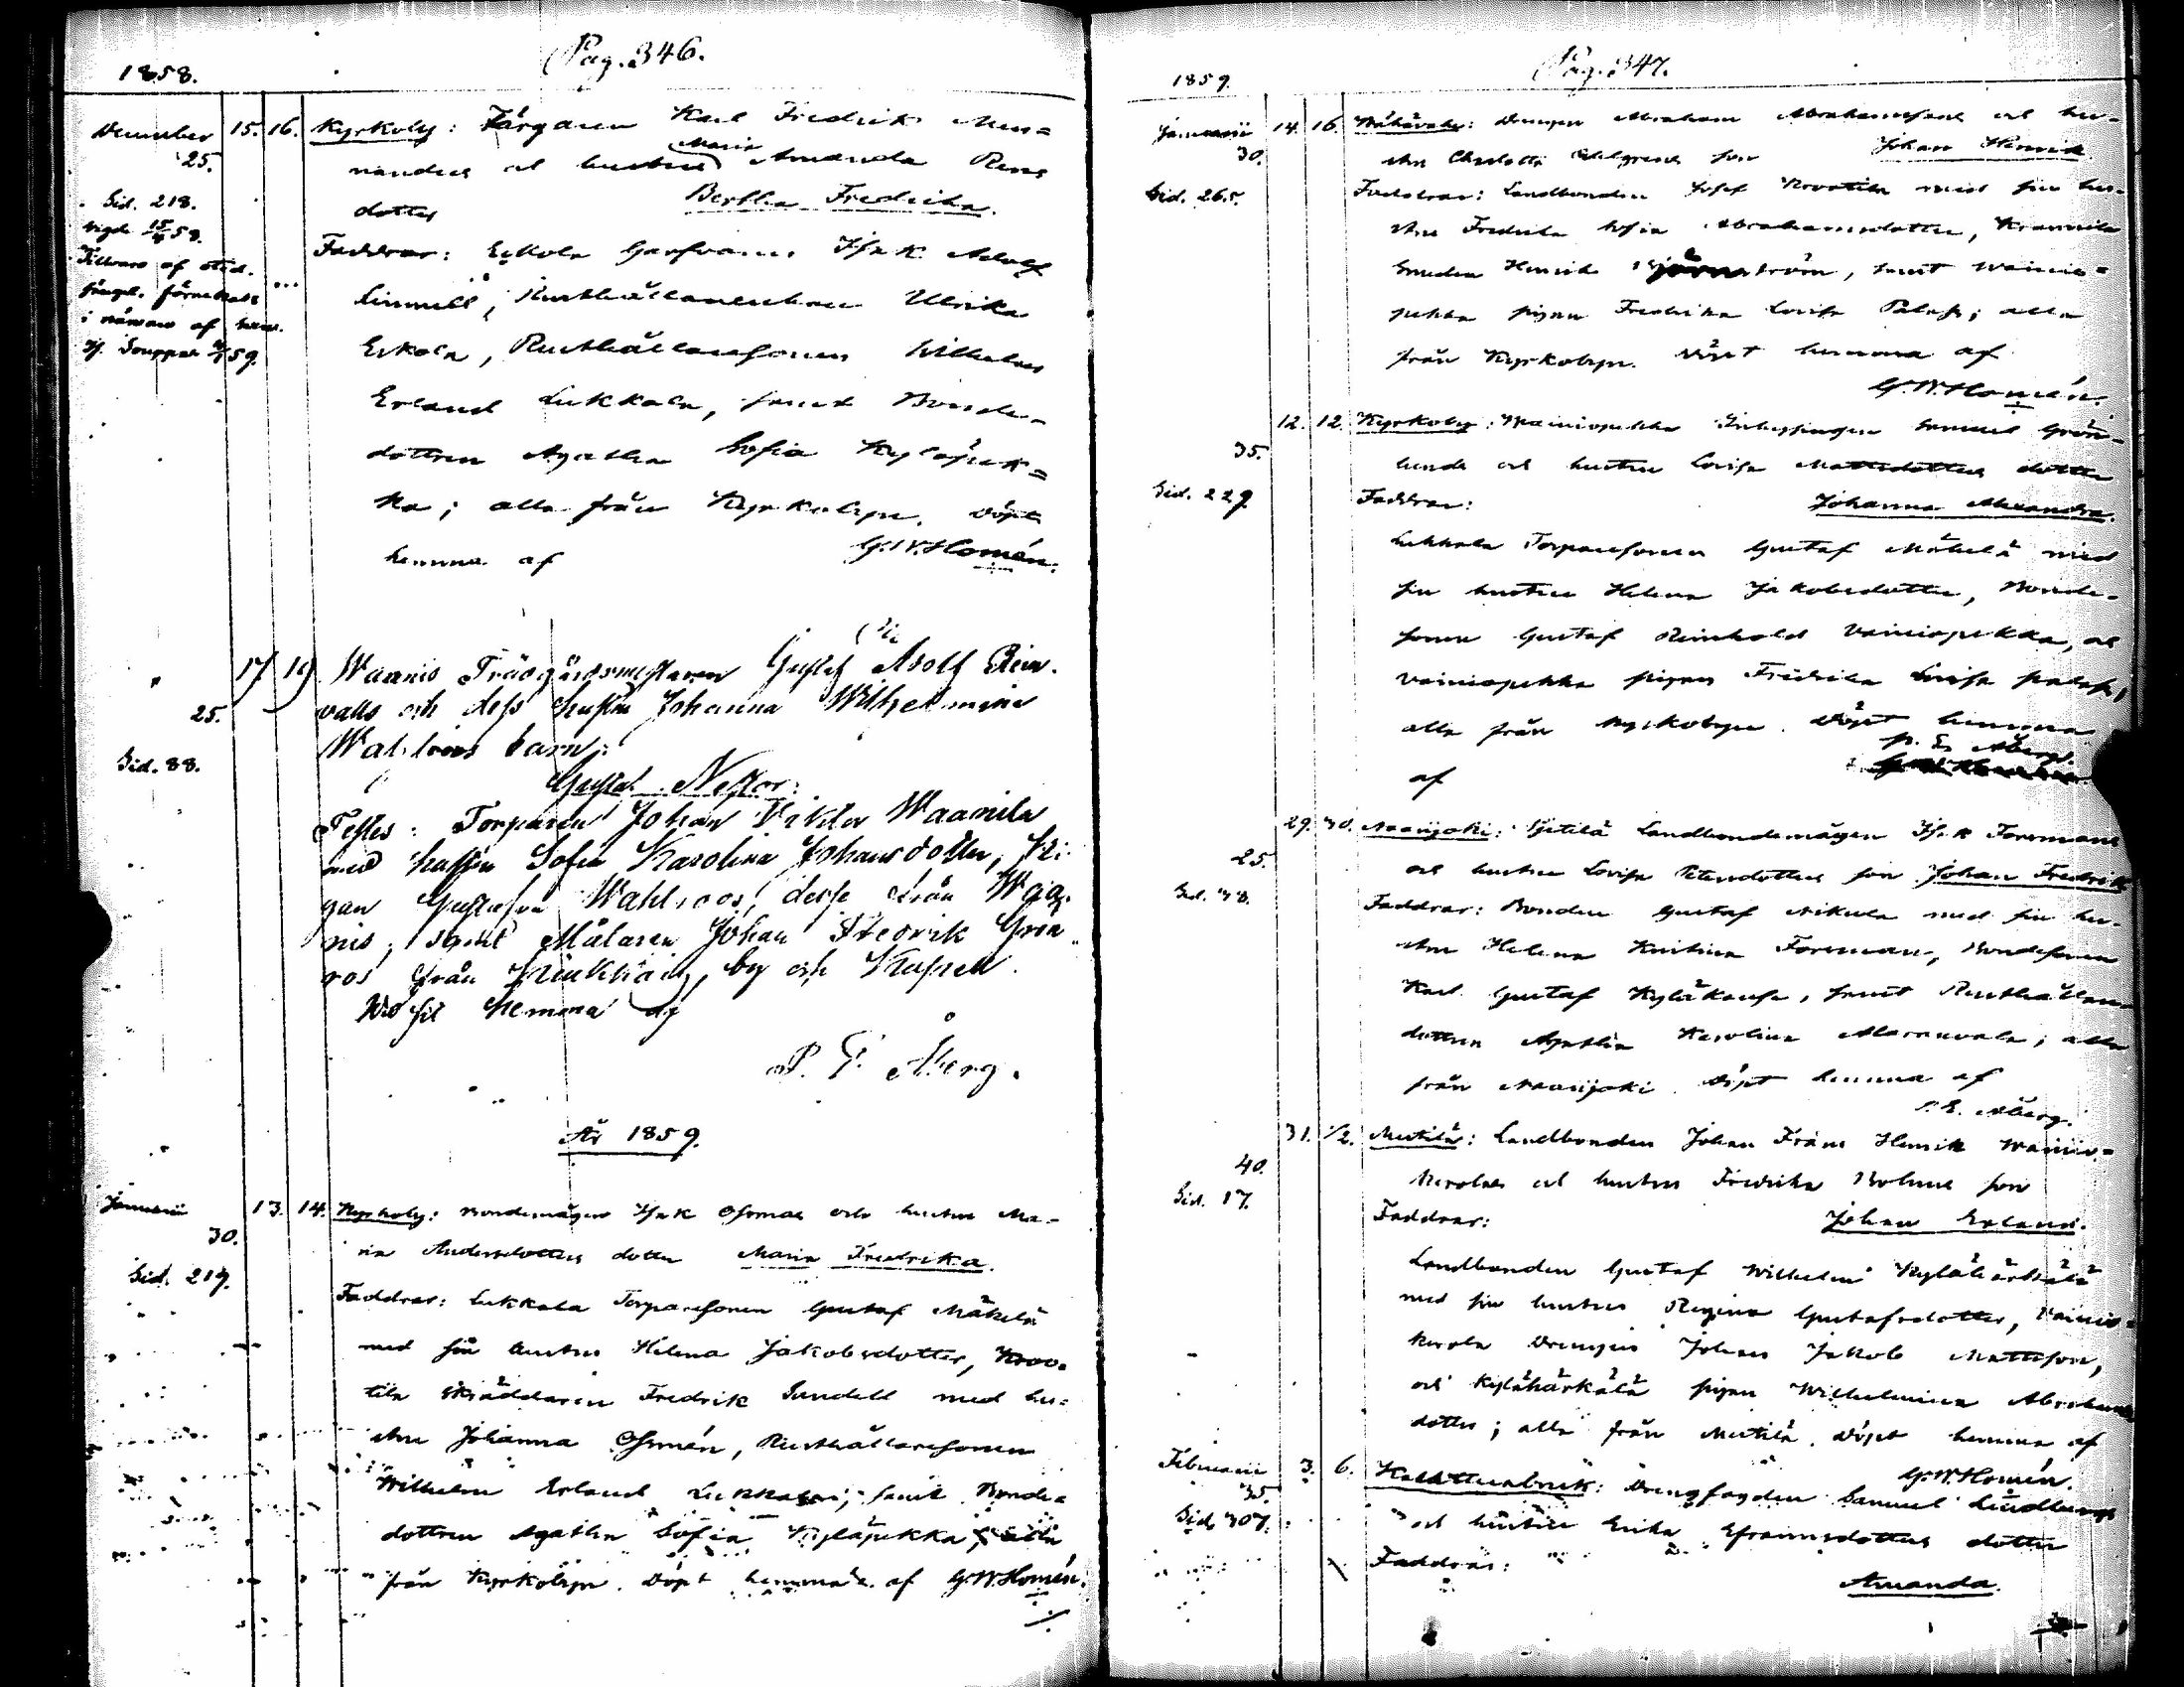 Pag. 346.
1858.
December 15. 16. Kyrkoby: Färgaren Karl Fredrik Men=
25.
nanders och hustrus Maria Amanda Rens
dotter Bertha Fredrika.
Sid. 218.
Faddrar: Eskola Garfvaren Isak Adolf
Linnell, Rusthållareenkan Ulrika
Eskola, Rusthållaresonen Wilhelm
Erland Lukkala, samt Bonde-
dottren Agatha Sofia Kyläpek=
ka; alla från Kyrkobyn. Döpt
hemma af G.W. Homén.
17 19 Waanis Trädgårdsmästaren Gustaf Adolf Rein-
25.
valls och dess hustru Johanna Wilhelmina
Wahlroos barn:
Sid. 88.
Gustaf Nestor.
Testes: Torparen Johan Viktor Waanila
med hustru Sofia Karolina Johansdotter, Pi-
gan Gustafva Wahlroos, desse från Waa-
nis, samt Målaren Johan Fredrik Grön
roos från by och Kapell.
hemma af
P. E. Åberg.
År 1859.
Januarii 13. 14. Kyrkoby: Bondemågen Isak Osmas och hustru Ma-
30.
ria Andersdotters dotter Maria Fredrika.
Sid. 219.
Faddrar: Lukkala Torparesonen Gustaf Mäkelä
med sin hustru Helena Jakobsdotter, Kroo-
tila Skräddaren Fredrik Sundell med hu=
stru Johanna Osmén, Rusthållaresonen
Wilhelm Erland Lukkala, samt Bonde=
dottren Agatha Sofia Kyläpekka; alla
från Kyrkobyn. Döpt hemma af G.W. Homén.
Pag. 347.
1859.
Januarii 14. 16. Drengen Abraham Abrahamsons och hu-
30.
stru Charlotta Ahlgrens son Johan Henrik
Sid. 265.
Faddrar: Landbonden Josef Krootila med sin hu-
stru Fredrika Sofia Abrahamsdotter,
Smeden Henrik Björnström, samt Wainio=
pekka pigan Fredrika Lovisa Palass; alla
från Kyrkobyn. Döpt hemma af
G.W. Homén.
12. 12. Kyrkoby: Wainiopekka Inhysingen Samuel Grön-
35.
lunds och hustru Lovisa Mattsdotters dotter
Sid. 229.
Faddrar: Johanna Alexandra.
Lukkala Torparesonen Gustaf Mäkelä med
sin hustru Helena Jakobsdotter, Bonde-
sonen Gustaf Reinhold Vainiopekka, och
Vainiopekka pigan Fredrika Lovisa Palass;
alla från Kyrkobyn. Döpt hemma
af P. E. Åberg.
29. 30. Naarijoki: Landbondemågen Isak Foremans
25.
och hustru Lovisa Petersdotters son Johan Fredrik
Sid. 38.
Faddrar: Bonden Gustaf Nikula med sin hu-
stru Helena Kristina Foreman, Bondesonen
Karl Gustaf Kyläkausa, samt Rusthållare-
dottren Agatha Karolina; alla
från Naarijoki. Döpt hemma af
P. E. Åberg.
31. 1/2. Mertilä: Landbonden Johan Frans Henrik Wainio=
40.
kerolas och hustrus Fredrika Bohms son
Sid. 17.
Faddrar: Johan Erland.
Landbonden Gustaf Wilhelm Kylähärkälä
med sin hustru Regina Gustafsdotter, Vainio=
kerola Drengen Johan Jakob Mattsson,
och Kylähärkälä pigan Wilhelmina Abrahams
dotter; alla från Mertilä. Döpt hemma af
G.W. Homén.
Februarii 3. 6. Drengfogden Samuel Lindbergs
35.
Sid. 307.
och hustru Erika Efraimsdotters dotter
Faddrar:
Amanda.